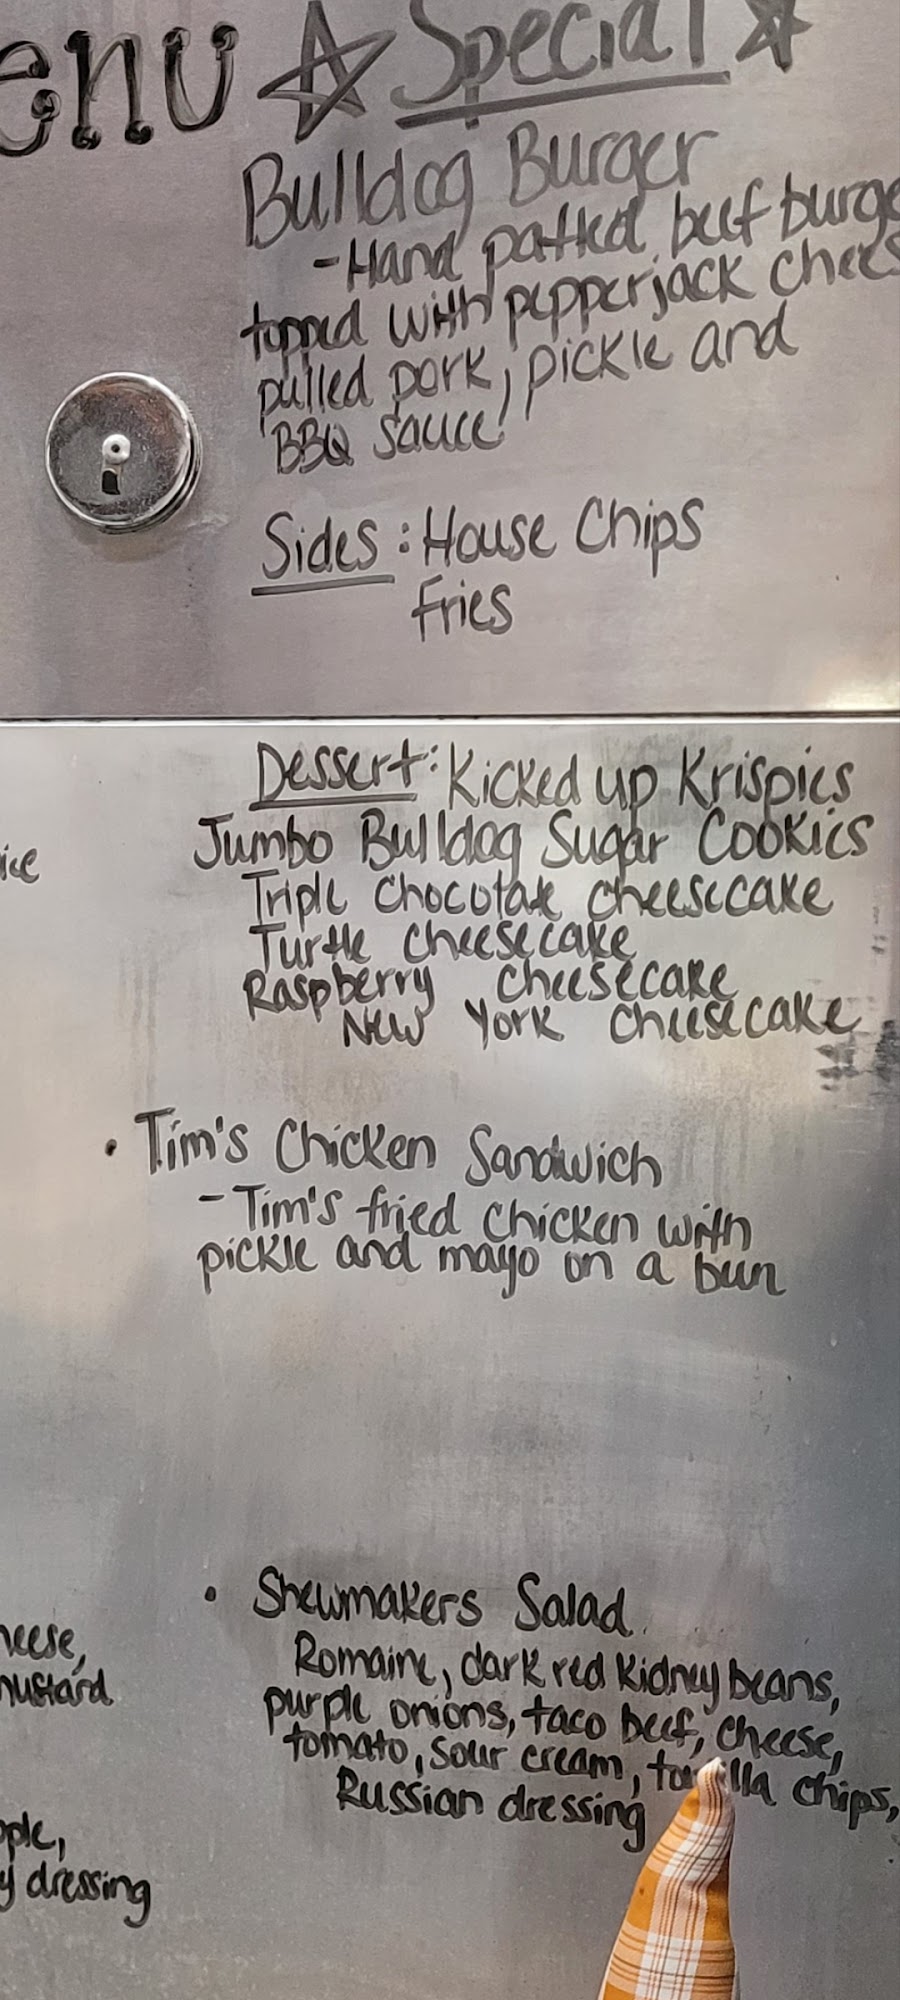 enu ☆ Special ☆
Bulldog Burger
-Hand patted beef burge
topped with pepperjack chees
pulled pork, pickle and
BBQ sauce
Sides: House Chips
Fries
Dessert: Kicked up Krispies
Jumbo Bulldog Sugar Cookies
ice
Triple Chocolate Cheesecake
Turtle Cheesecake
Raspberry Cheesecake
New York Cheesecake
• Tim's Chicken Sandwich
-Tim's fried chicken with
pickle and mayo on a bun
• Shewmakers Salad
heese,
Romaine, dark red kidney beans,
mustard
purple onions, taco beef, cheese,
tomato, sour cream, tortilla chips,
Russian dressing
pple,
y dressing